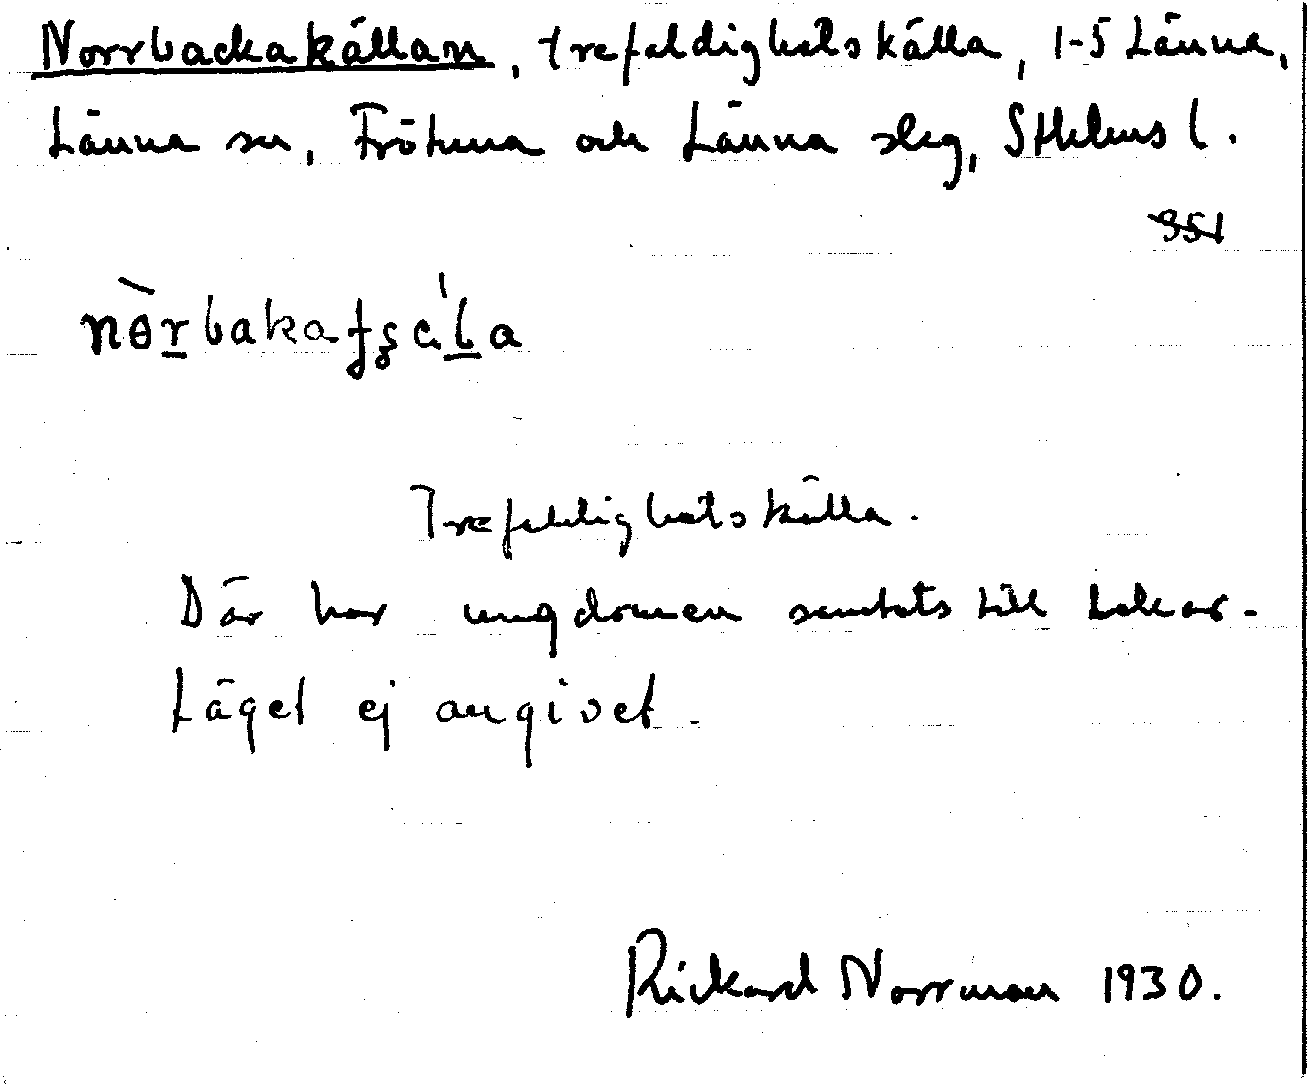 Norrbackakällan, trefaldighetskälla, 1-5 Länna,
Länna sn, Frötuna och Länna slag, Sthlms l.
351
Trefaldighetskälla.
Där har ungdomen samlats till lekar.
Läget ej angivet.
Rickard Norrman 1930.